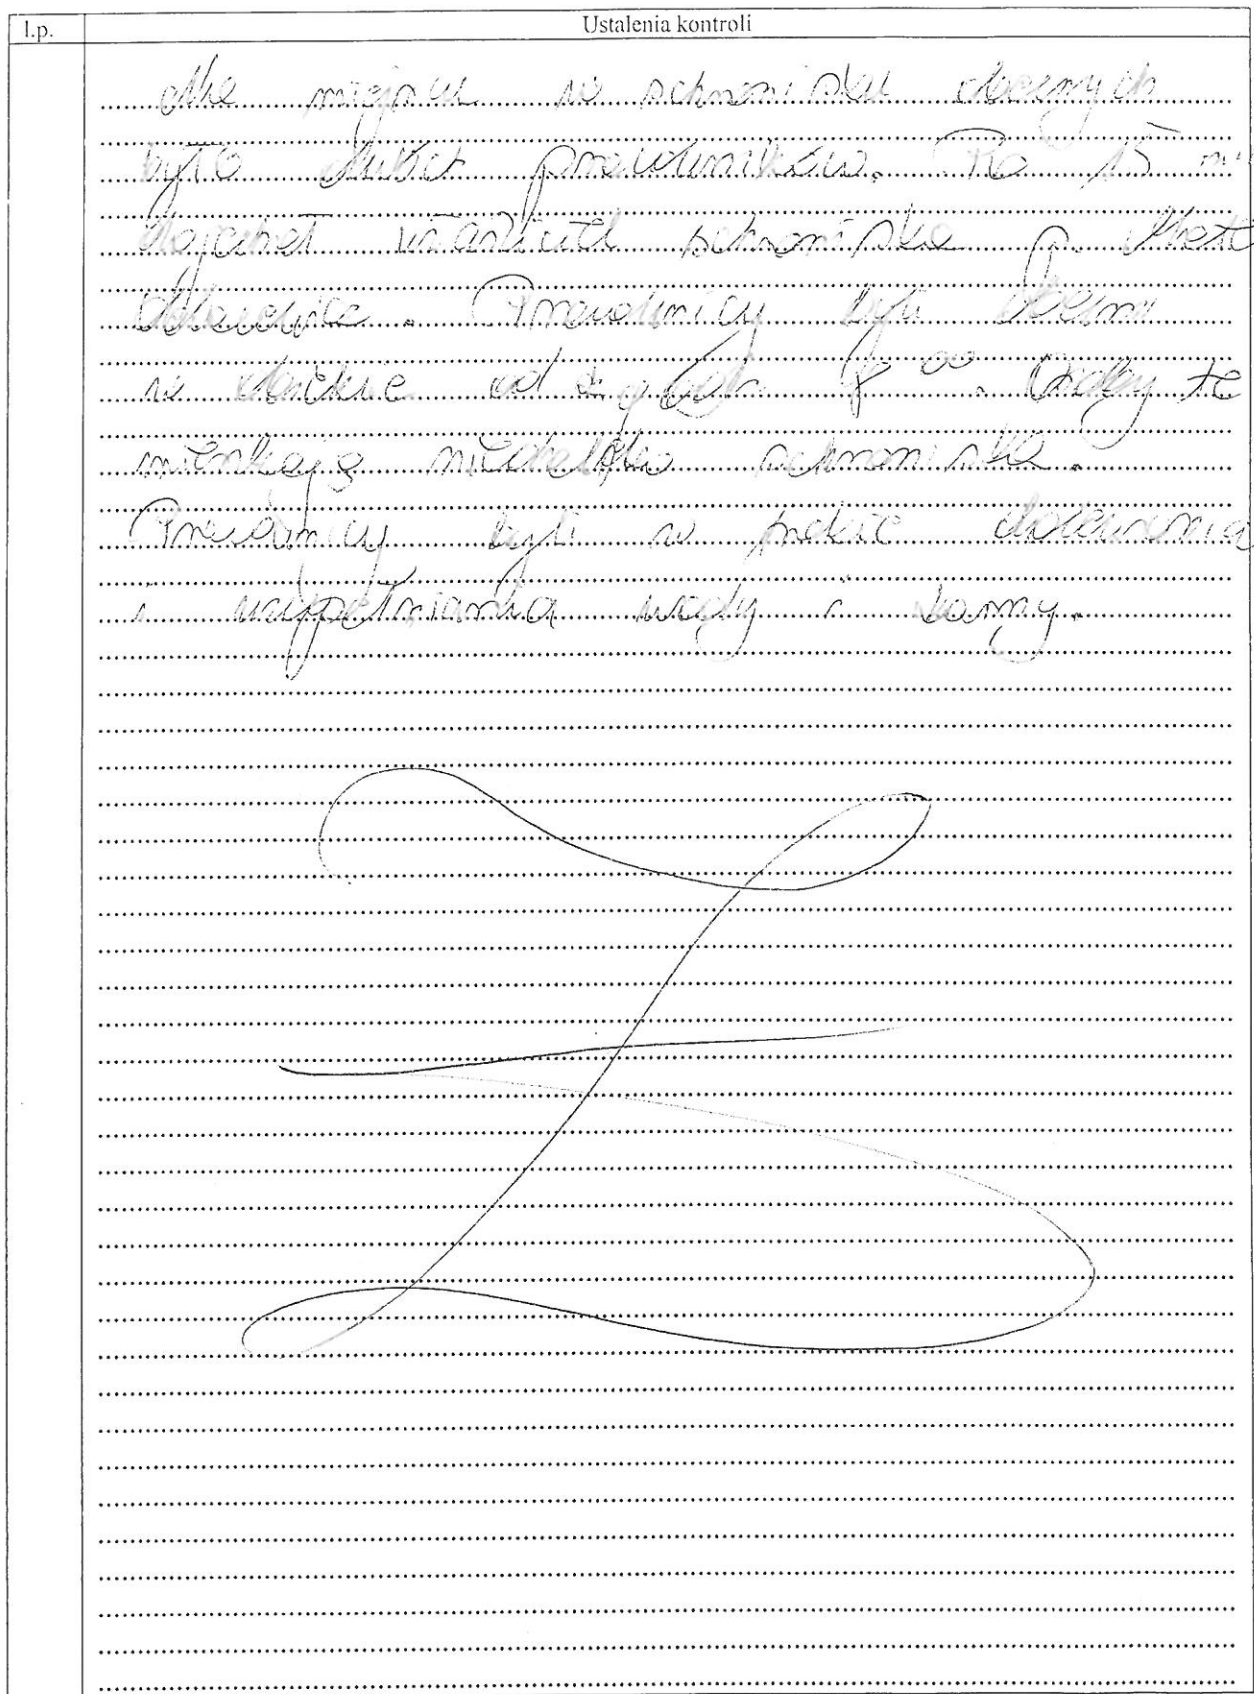 l.p. Ustalenia kontroli
Na miejscu w schronisku obecnych
było dwóch pracowników. Po 15 min
dojechał właściciel schroniska p.
Pracownicy byli obecni
w obiekcie od godz. 8⁰⁰. Osoby te
mieszkają niedaleko schroniska.
Pracownicy byli w trakcie
i uzupełniania wody i karmy.